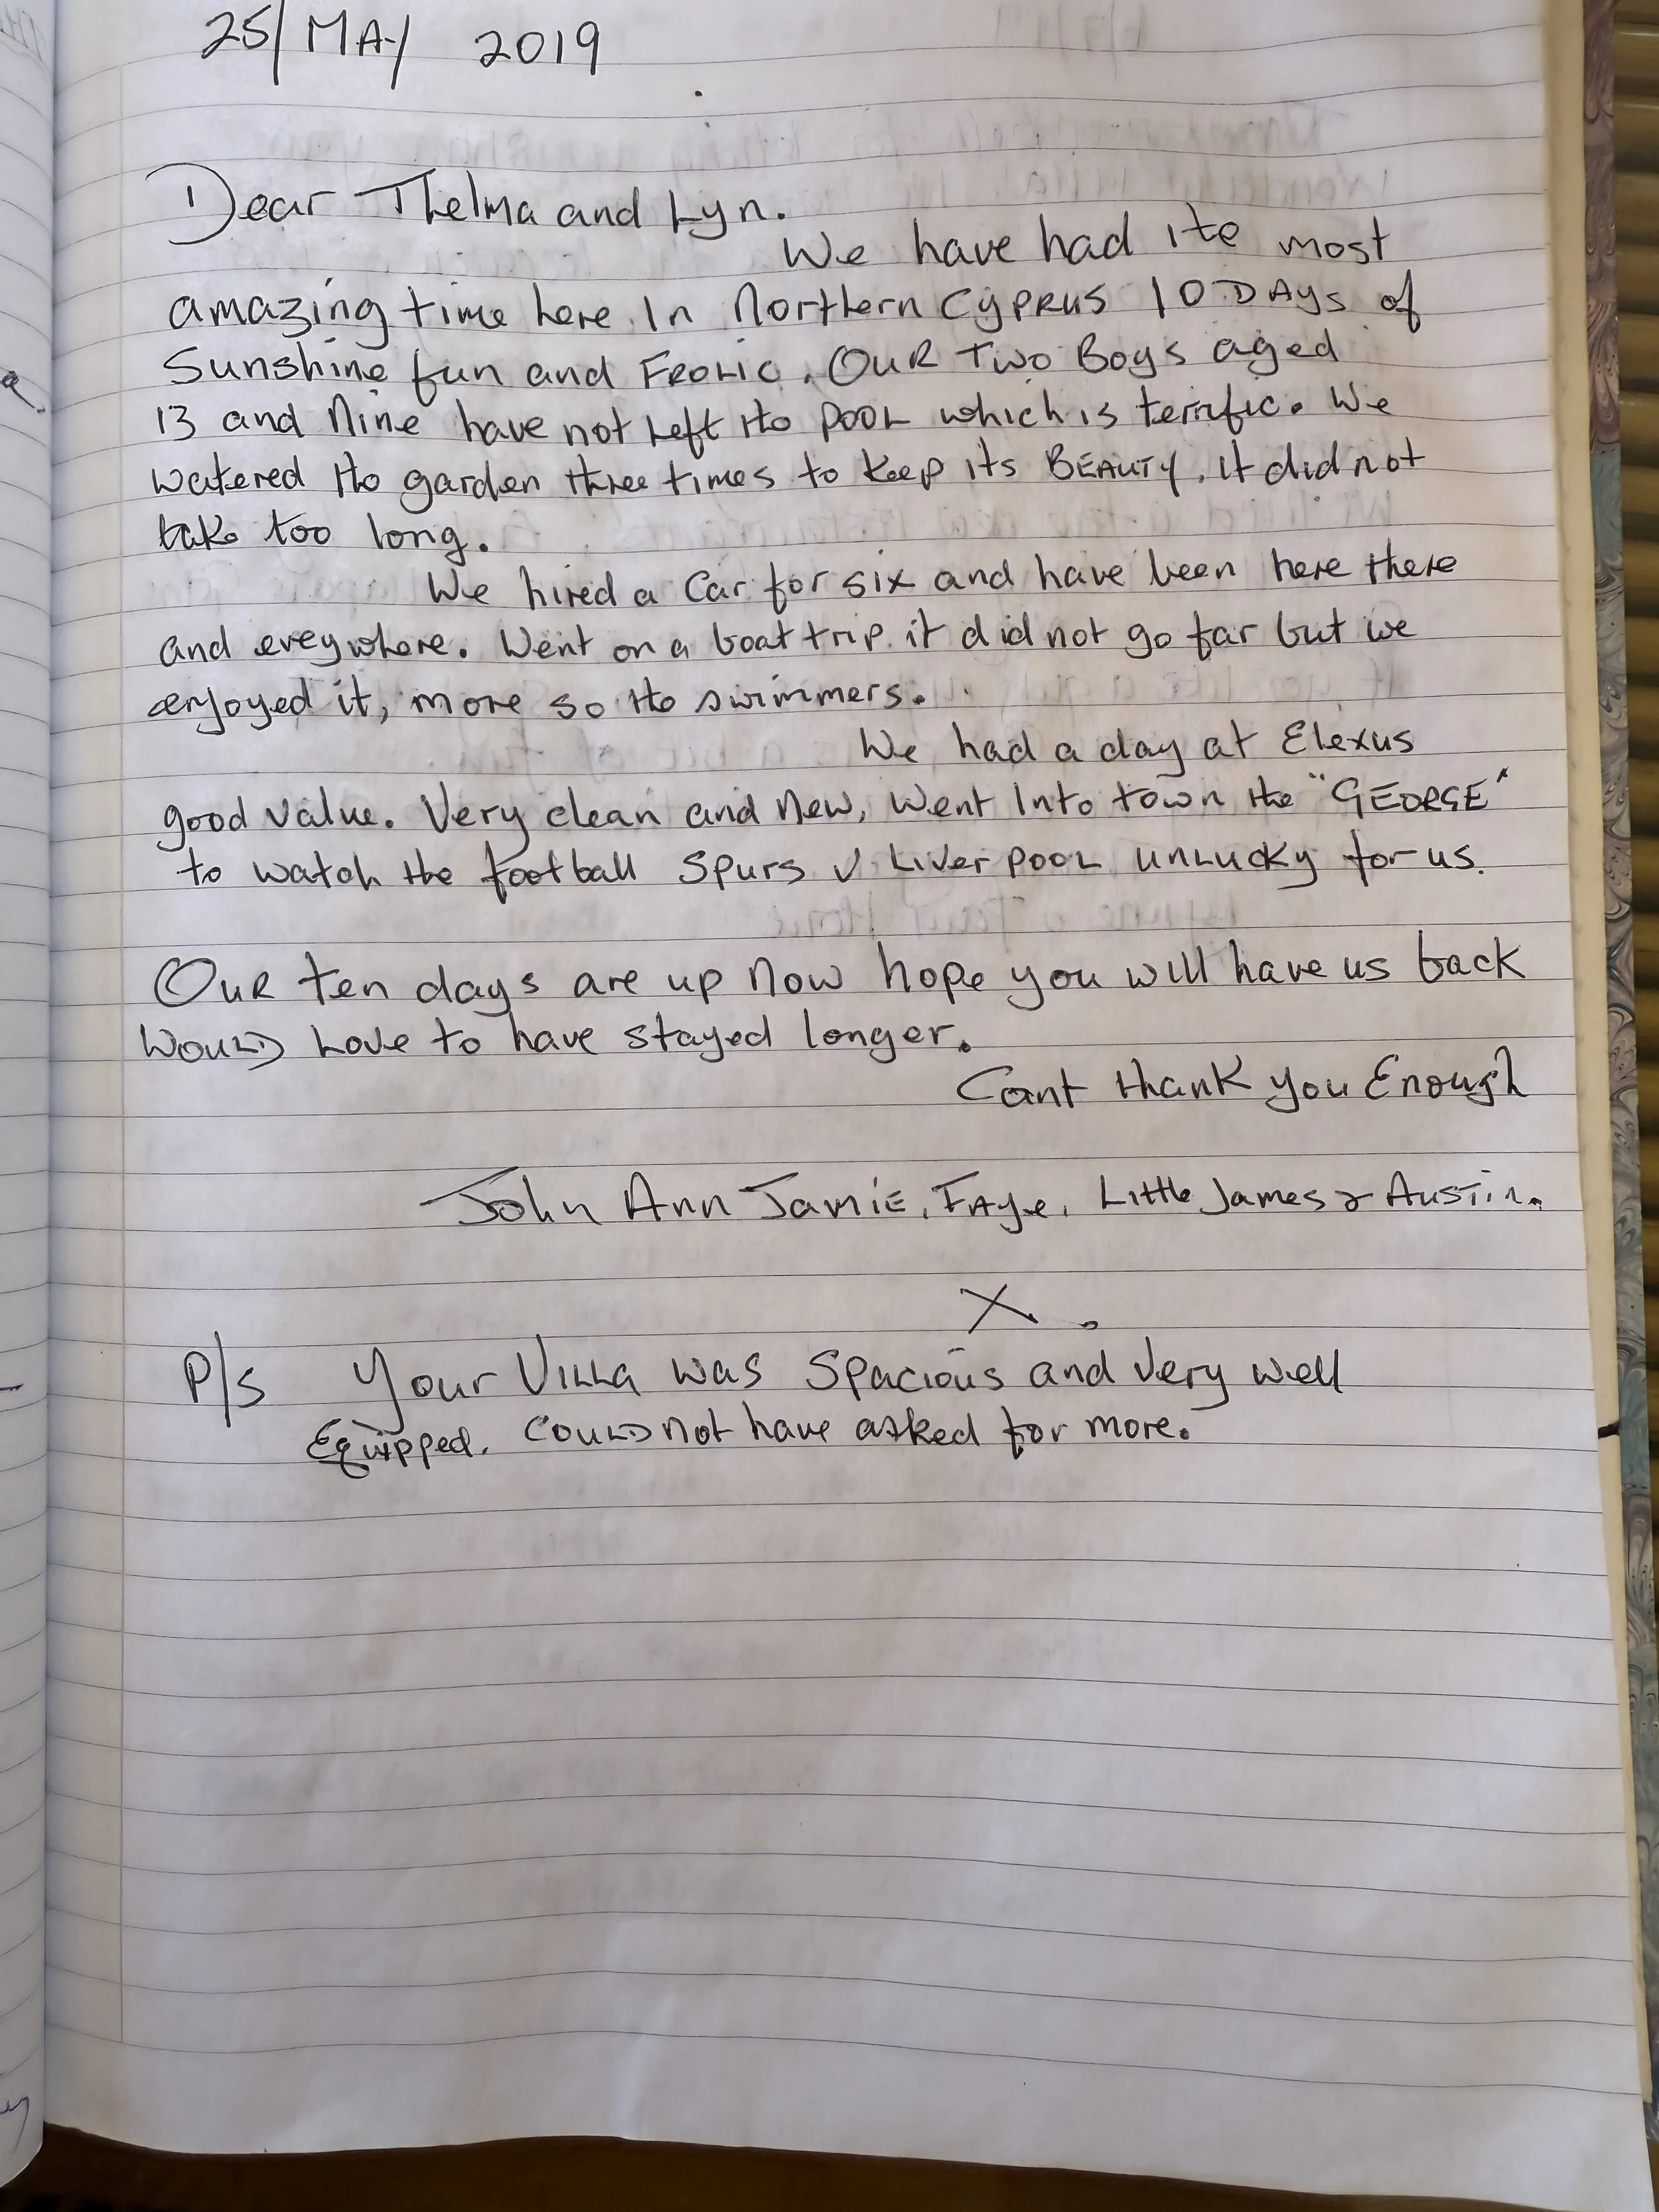 25/MAY 2019
Dear Thelma and Lyn.
We have had the most
amazing time here in Northern CYPRUS 10 DAYS of
Sunshine fun and FROLIC. OUR Two Boys aged
13 and Nine have not Left the POOL which is terrific. We
watered the garden three times to keep its BEAUTY, it did not
take too long.
We hired a Car for six and have been here there
and eveywhere. Went on a boat trip it did not go far but we
enjoyed it, more so the swimmers.
We had a day at Elexus
good value. Very clean and New, Went Into town the "GEORGE"
to watch the football Spurs V LiverPOOL UNLUCKY for us.
OUR ten days are up now hope you will have us back
WOULD Love to have stayed longer.
Cant thank you Enough
John Ann Jamie, FAye, Little James & AUSTin.
X.
P/s Your VILLa was Spacious and Very well
Equipped. COULD not have asked for more.